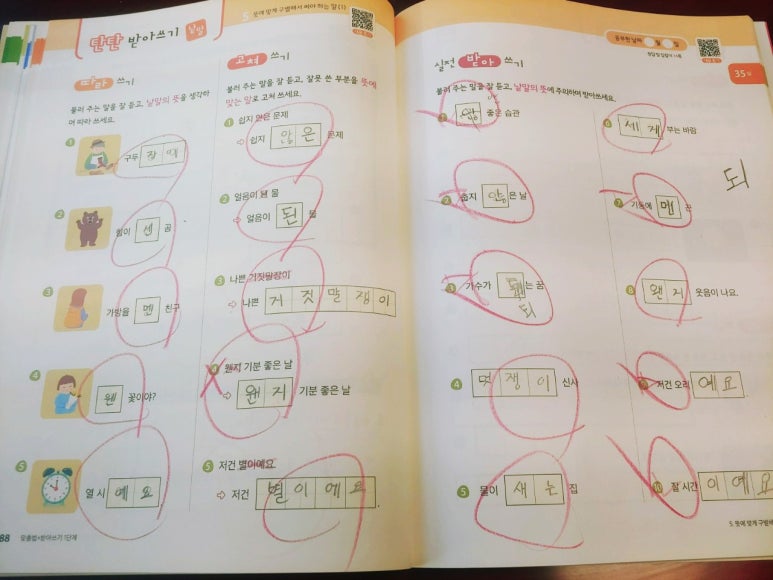 탄탄 받아쓰기 낱말
5 뜻에 맞게 구별해서 써야 하는 말 (1)
따라 쓰기
불러 주는 말을 잘 듣고, 낱말의 뜻을 생각하
며 따라 쓰세요.
1 구두
2 힘이 센 곰
3 가방을 멘 친구
4 웬 꽃이야?
5 열 시 예요.
88 맞춤법+받아쓰기 1단계
고쳐 쓰기
불러 주는 말을 잘 듣고, 잘못 쓴 부분을 뜻에
맞는 말로 고쳐 쓰세요.
1 쉽지 안은 문제
쉽지 않은 문제
2 얼음이 됀 물
얼음이 된 물
3 나쁜 거짓말장이
나쁜 거짓말쟁이
4 웬지 기분 좋은 날
왠지 기분 좋은 날
5 저건 별이에요.
저건 별이에요.
실전 받아 쓰기
공부한 날짜 월 일
35
불러 주는 말을 잘 듣고, 낱말의 뜻에 주의하며 받아쓰세요.
1 좋은 습관
2 춥지 은 날
3 가수가 는 꿈
되
4 멋쟁이 신사
5 물이 새는 집
6 세게 부는 바람
되
7 기둥에
8 왠지 웃음이 나요.
9 저건 오리 예요.
10 잘 시간 이예요.